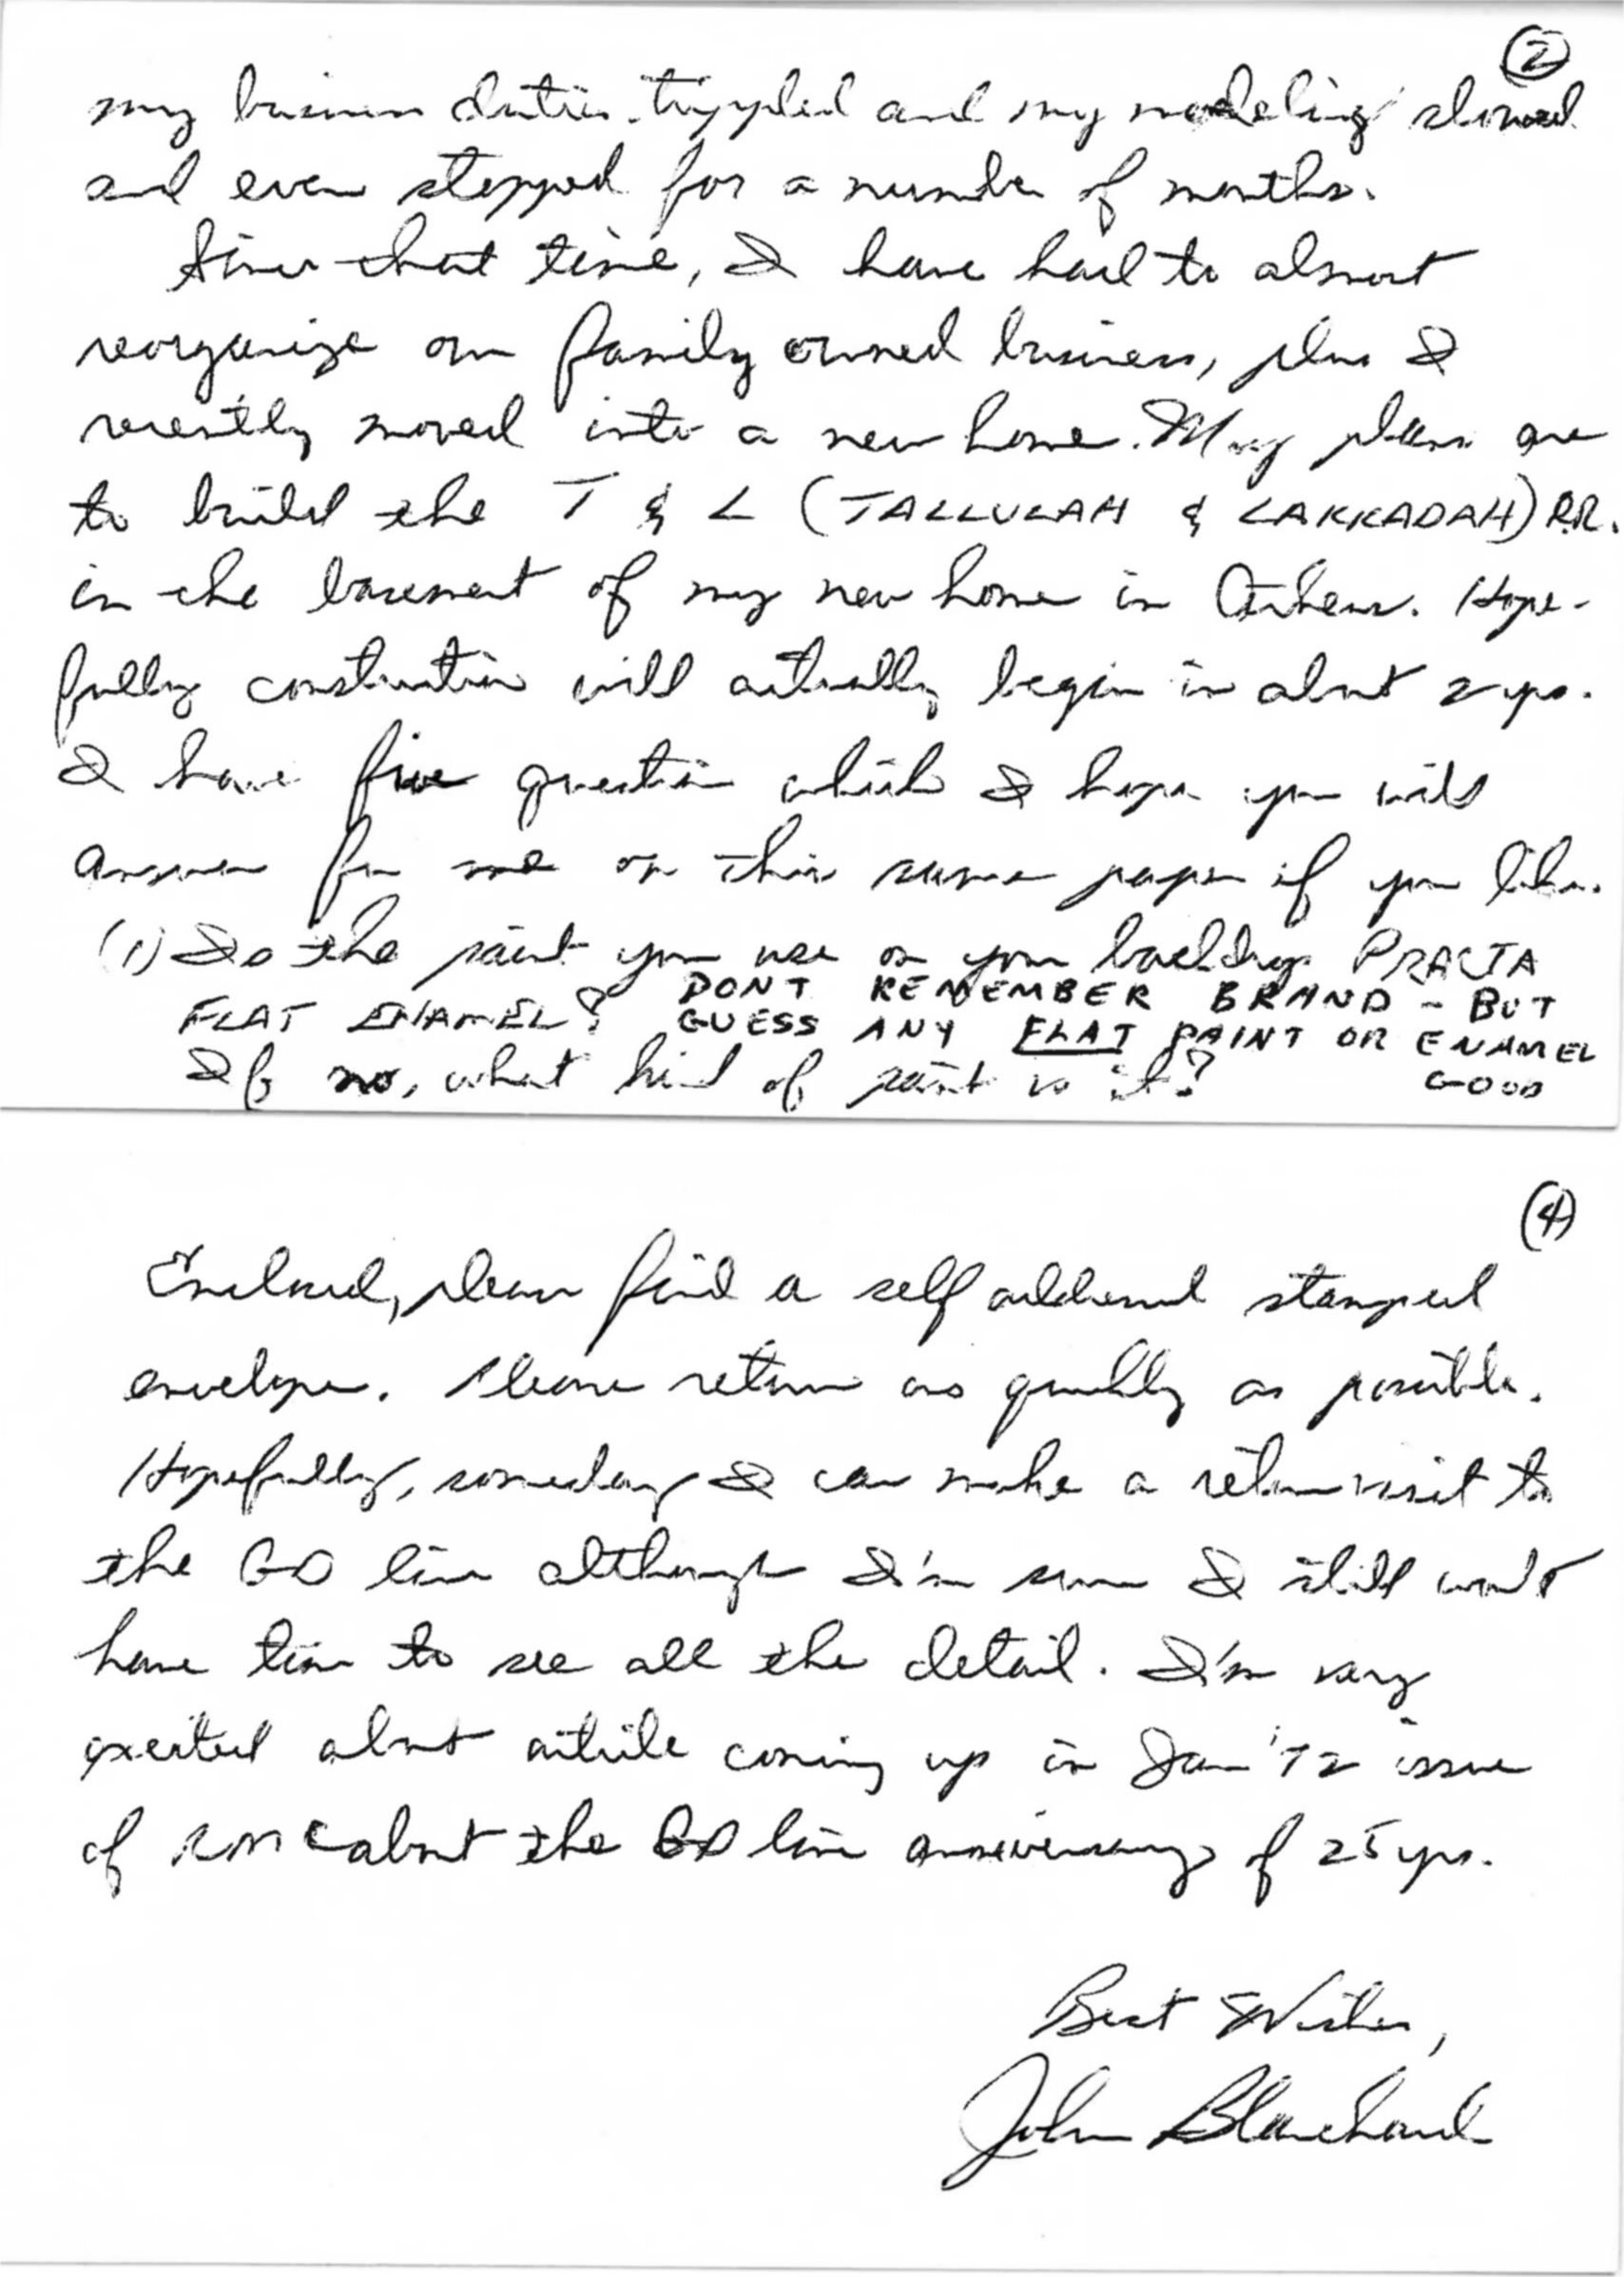 (2)
my business duties trippled and my modeling slowed
and even stopped for a number of months.
Since that time, I have had to almost
reorganize our family owned business, plus I
recently moved into a new home. My plans are
to build the T & L (TALLULAH & LAKKADAH) RR.
in the basement of my new home in Athens. Hope-
fully construction will actually begin in about 2 yrs.
I have five question which I hope you will
answer for me on this same paper if you like.
(1) Is the paint you use on your backdrop PRACTA
DONT REMEMBER BRAND - BUT
FLAT ENAMEL? GUESS ANY FLAT PAINT OR ENAMEL
If no, what kind of paint is it? GOOD
(4)
Enclosed, please find a self addressed stamped
envelope. Please return as quickly as possible.
Hopefully, someday I can make a return visit to
the GD line although I'm sure I still won't
have time to see all the detail. I'm very
excited about article coming up in Jan '72 issue
of RMC about the GD line anniversary of 25 yrs.
Best Wishes,
John Blanchard